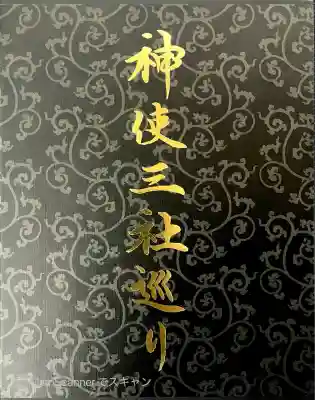 神使三社巡り
Scanner でスキャン